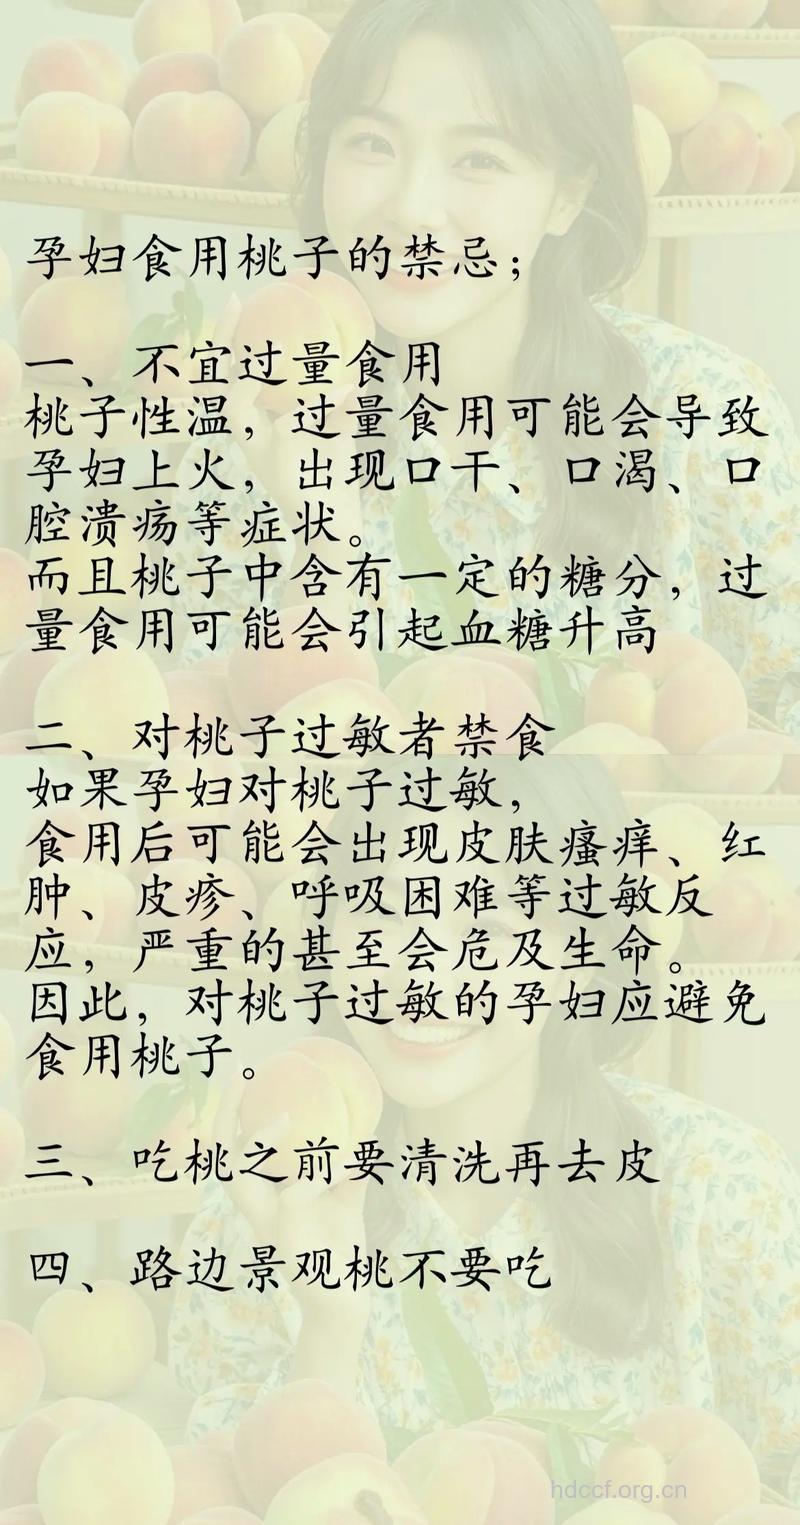 孕妇食用桃子的禁忌；
一、不宜过量食用
桃子性温，过量食用可能会导致
孕妇上火，出现口干、口渴、口
腔溃疡等症状。
而且桃子中含有一定的糖分，过
量食用可能会引起血糖升高
二、对桃子过敏者禁食
如果孕妇对桃子过敏，
食用后可能会出现皮肤瘙痒、红
肿、皮疹、呼吸困难等过敏反
应，严重的甚至会危及生命。
因此，对桃子过敏的孕妇应避免
食用桃子。
三、吃桃之前要清洗再去皮
四、路边景观桃不要吃
hdccf.org.cn